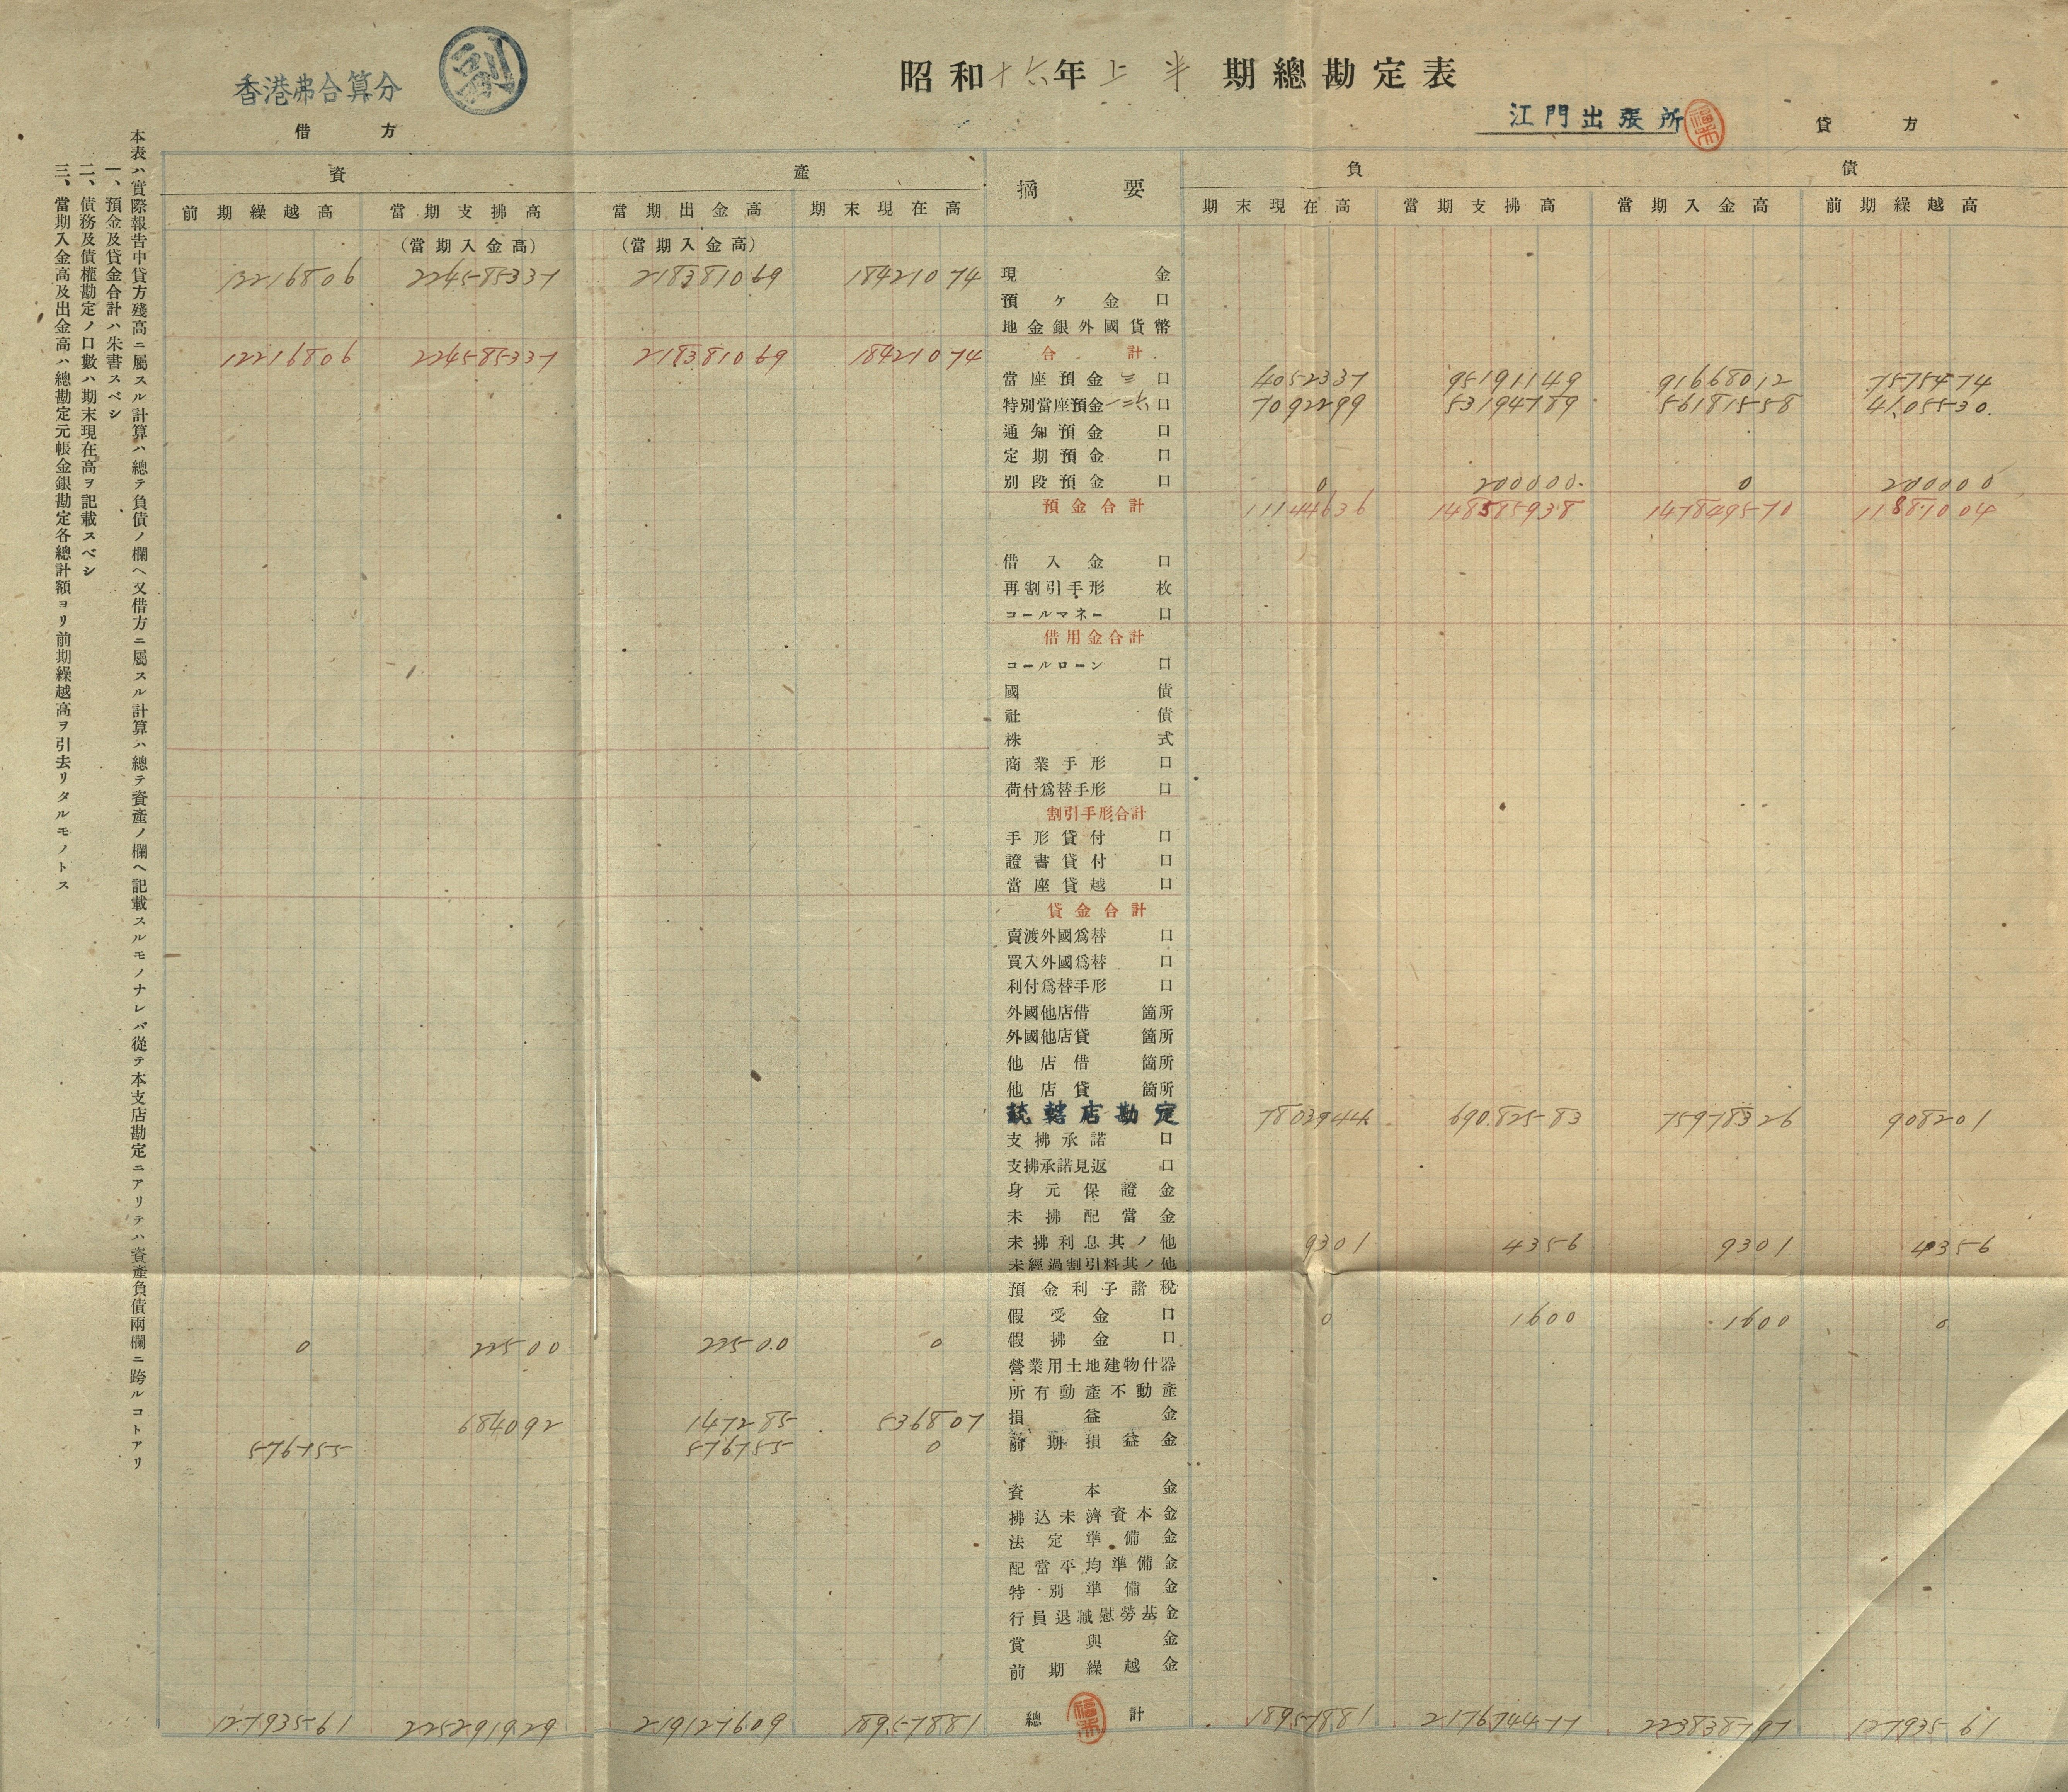 香港弗合算分
副
昭和十六年上半期總勘定表
江門出張所
借方
貸方
本表ハ實際報告中貸方殘高ニ屬スル計算ハ總テ負債ノ欄ヘ又借方ニ屬スル計算ハ總テ資產ノ欄ヘ記載スルモノナレバ從テ本支店勘定ニアリテハ資產負債兩欄ニ跨ルコトアリ
一、預金及貸金合計ハ朱書スベシ
二、債務及債權勘定ノ口數ハ期末現在高ヲ記載スベシ
三、當期入金高及出金高ハ總勘定元帳金銀勘定各總計額ヨリ前期繰越高ヲ引去リタルモノトス
資產 摘要 負債
前期繰越高 當期支拂高 當期出金高 期末現在高 期末現在高 當期支拂高 當期入金高 前期繰越高
(當期入金高) (當期入金高)
12216806 224585337 218381069 18421074 現金
預ケ金 口
地金銀外國貨幣
12216806 224585337 218381069 18421074 合計
當座預金 三 口 4052337 95191149 91668012 7575474
特別當座預金 一二六 口 7092299 53194789 56181558 4105530
通知預金 口
定期預金 口
別段預金 口 0 200000 0 200000
預金合計 11144636 148585938 147849570 11881004
借入金 口
再割引手形 枚
コールマネー 口
借用金合計
コールローン 口
國債
社債
株式
商業手形 口
荷付爲替手形 口
割引手形合計
手形貸付 口
證書貸付 口
當座貸越 口
貸金合計
賣渡外國爲替 口
買入外國爲替 口
利付爲替手形 口
外國他店借 箇所
外國他店貸 箇所
他店借 箇所
他店貸 箇所
統轄店勘定 7803944 69082583 75978326 908201
支拂承諾 口
支拂承諾見返 口
身元保證金
未拂配當金
未拂利息其ノ他 9301 4356 9301 4356
未經過割引料其ノ他
預金利子諸稅
假受金 口 0 1600 1600 0
0 22500 22500 0 假拂金 口
營業用土地建物什器
所有動產不動產
684092 147285 536807 損益金
576755 576755 0 前期損益金
資本金
拂込未濟資本金
法定準備金
配當平均準備金
特別準備金
行員退職慰勞基金
賞與金
前期繰越金
12793561 225291929 219127609 18957881 總計 18957881 217674477 223838797 12793561